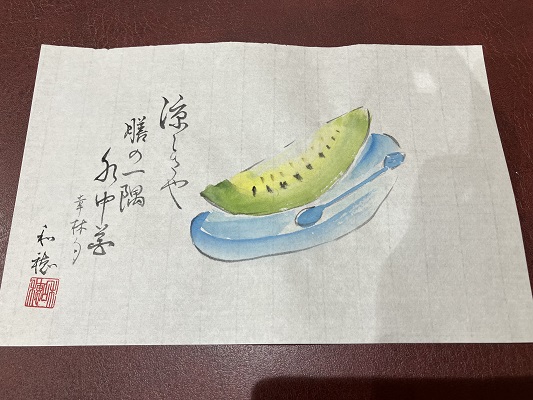 涼しさや
膳の一隅
水中花
幸林
和穂